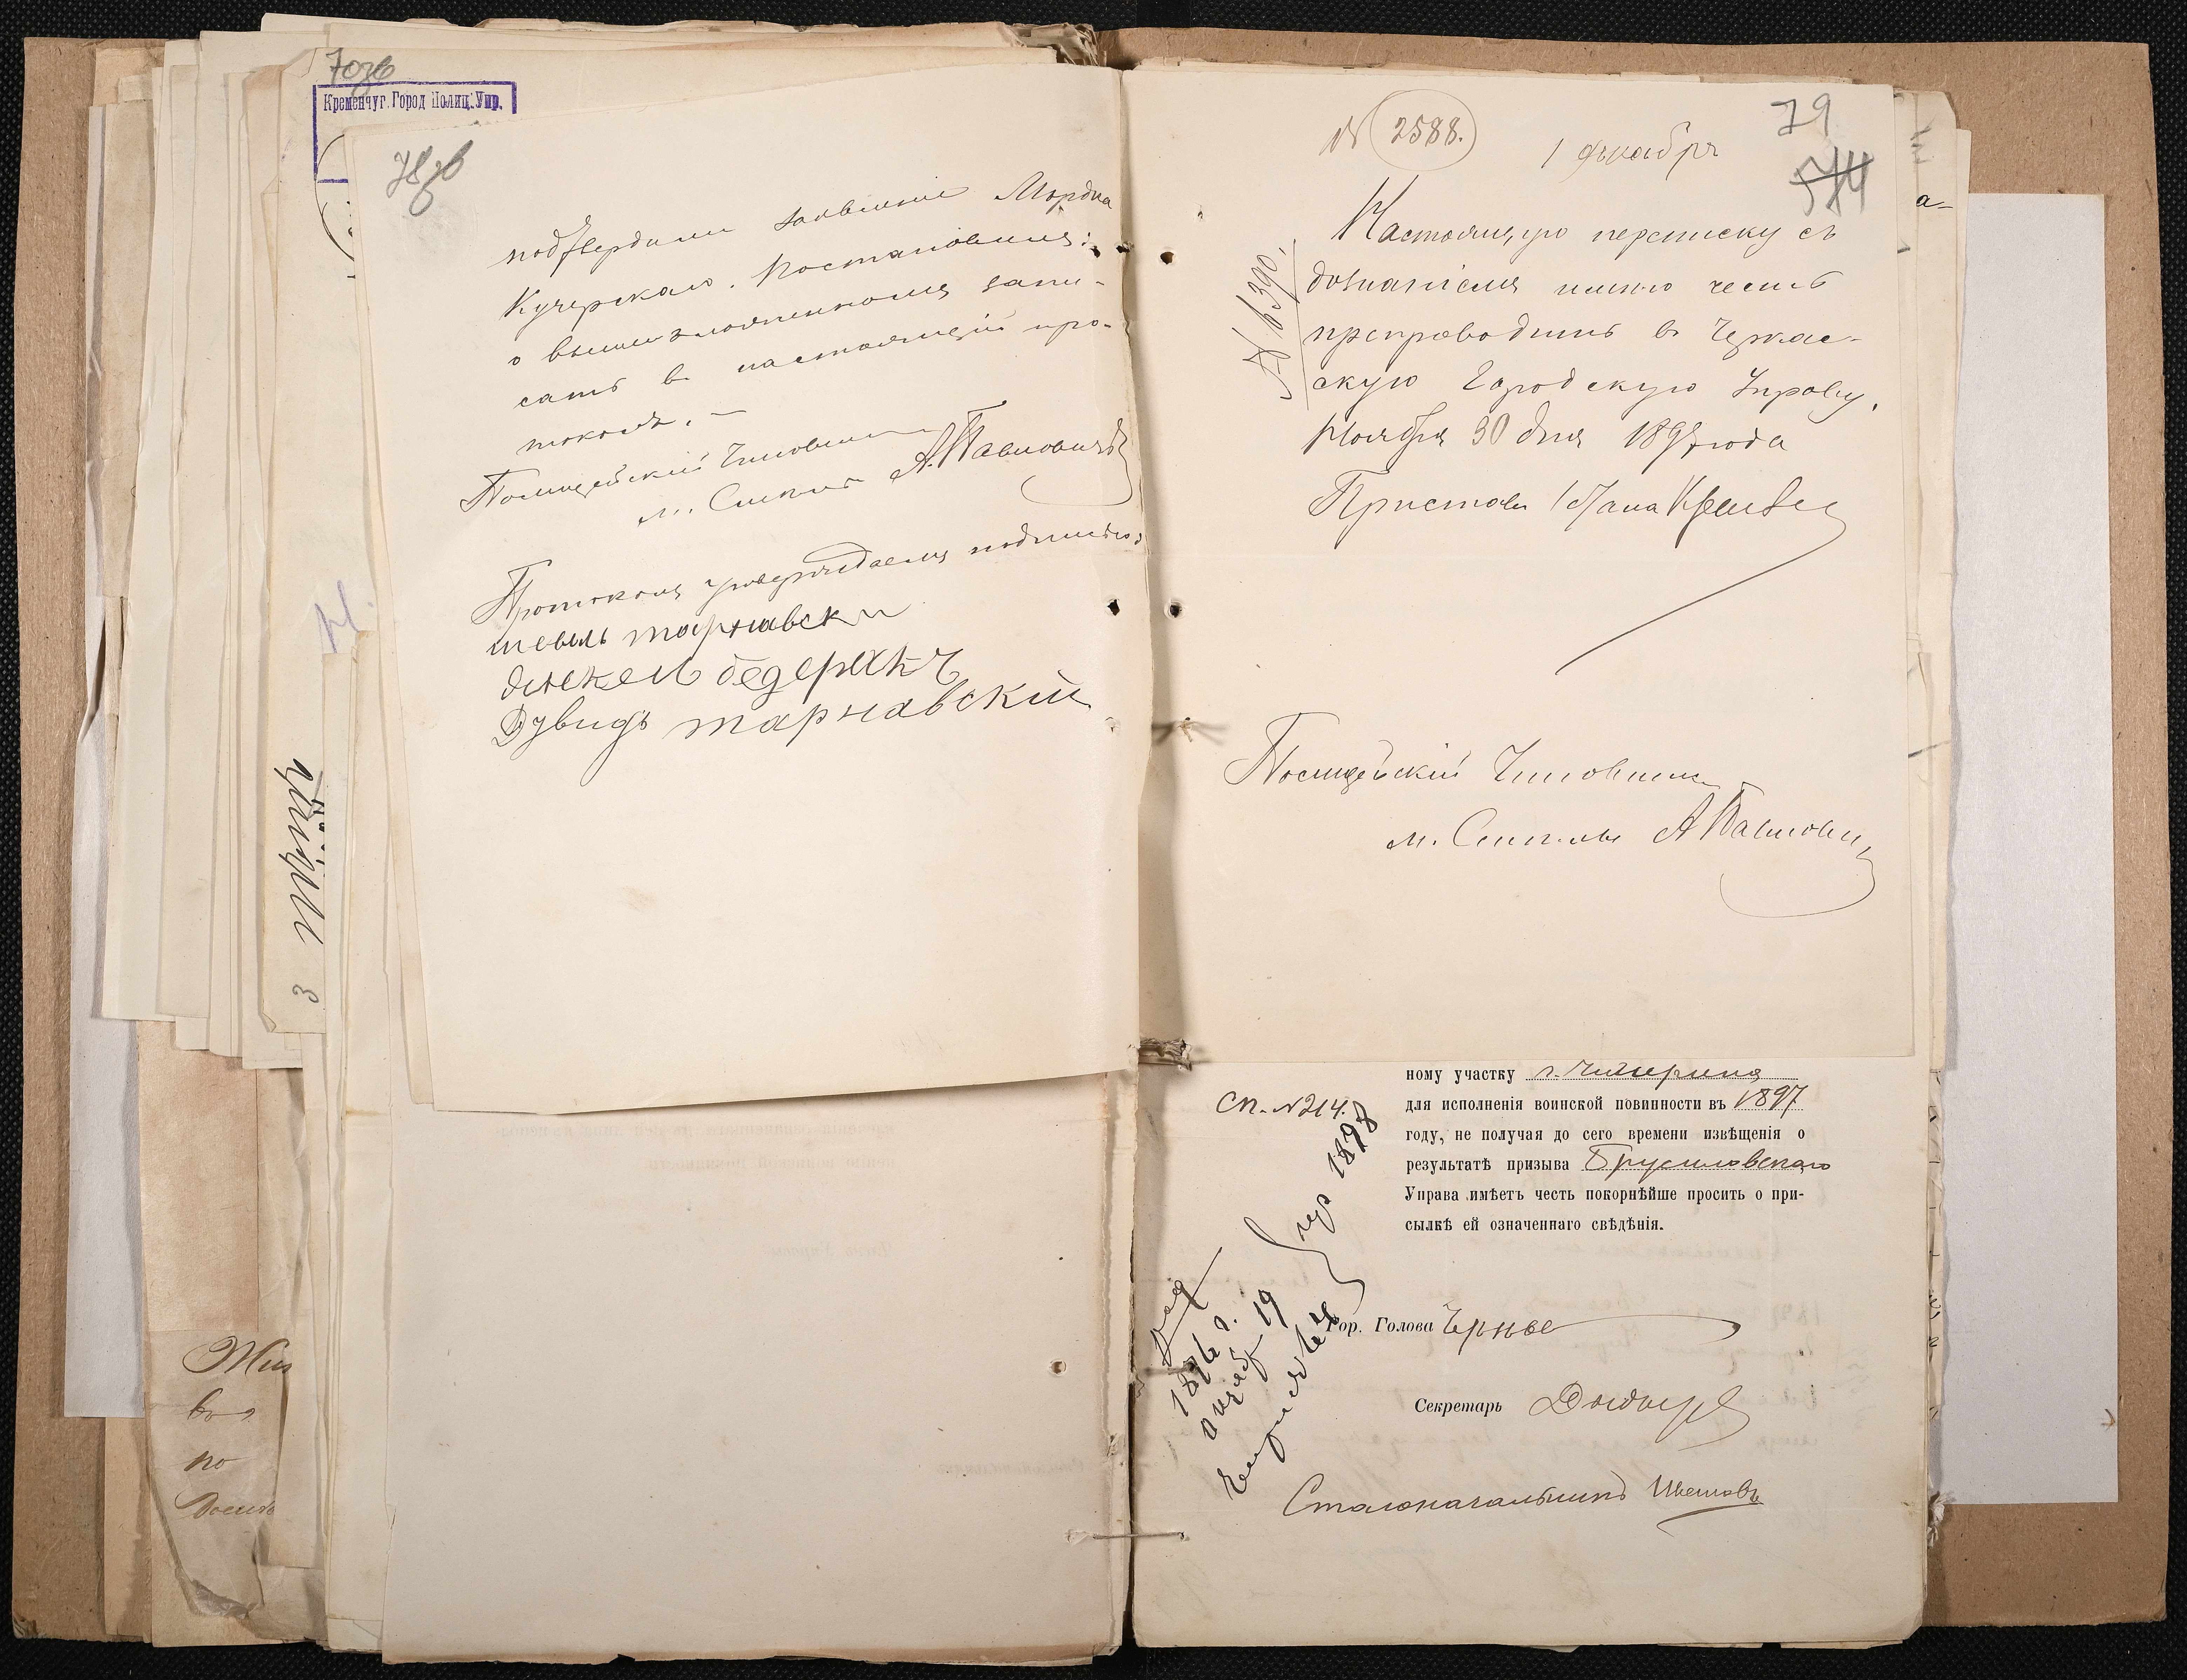 70об
Кременчуг. Город Полиц. Упр.
78об
подтвердили заявление Мордка
Кучерскаго. Постановилъ:
о вышеизложенномъ запи-
сать въ настоящій про-
токолъ. —
Полицейскій Чиновникъ
м. Смела А. Павловичъ
Протоколъ утверждаемъ подписью:
шевель тарнавски
Дувидъ тарнавскій
№ 2588.
1 декабря
79
574
№ 6390.
Настоящую переписку съ
дознаніемъ имѣю честь
препроводить въ Черкас-
скую Городскую Управу.
Ноября 30 дня 1897 года
Приставъ 1 Стана
Полицейскій Чиновникъ
м. Смелы А Павловичъ
ному участку г. Чигирина
для исполненія воинской повинности въ 1897
году, не получая до сего времени извѣщенія о
результатѣ призыва Брусиловскаго
Управа имѣетъ честь покорнѣйше просить о при-
сылкѣ ей означеннаго свѣдѣнія.
СП. №214.
1898
1876 г.
19
Гор. Голова
Секретарь
Столоначальникъ
3
Жит
во
по